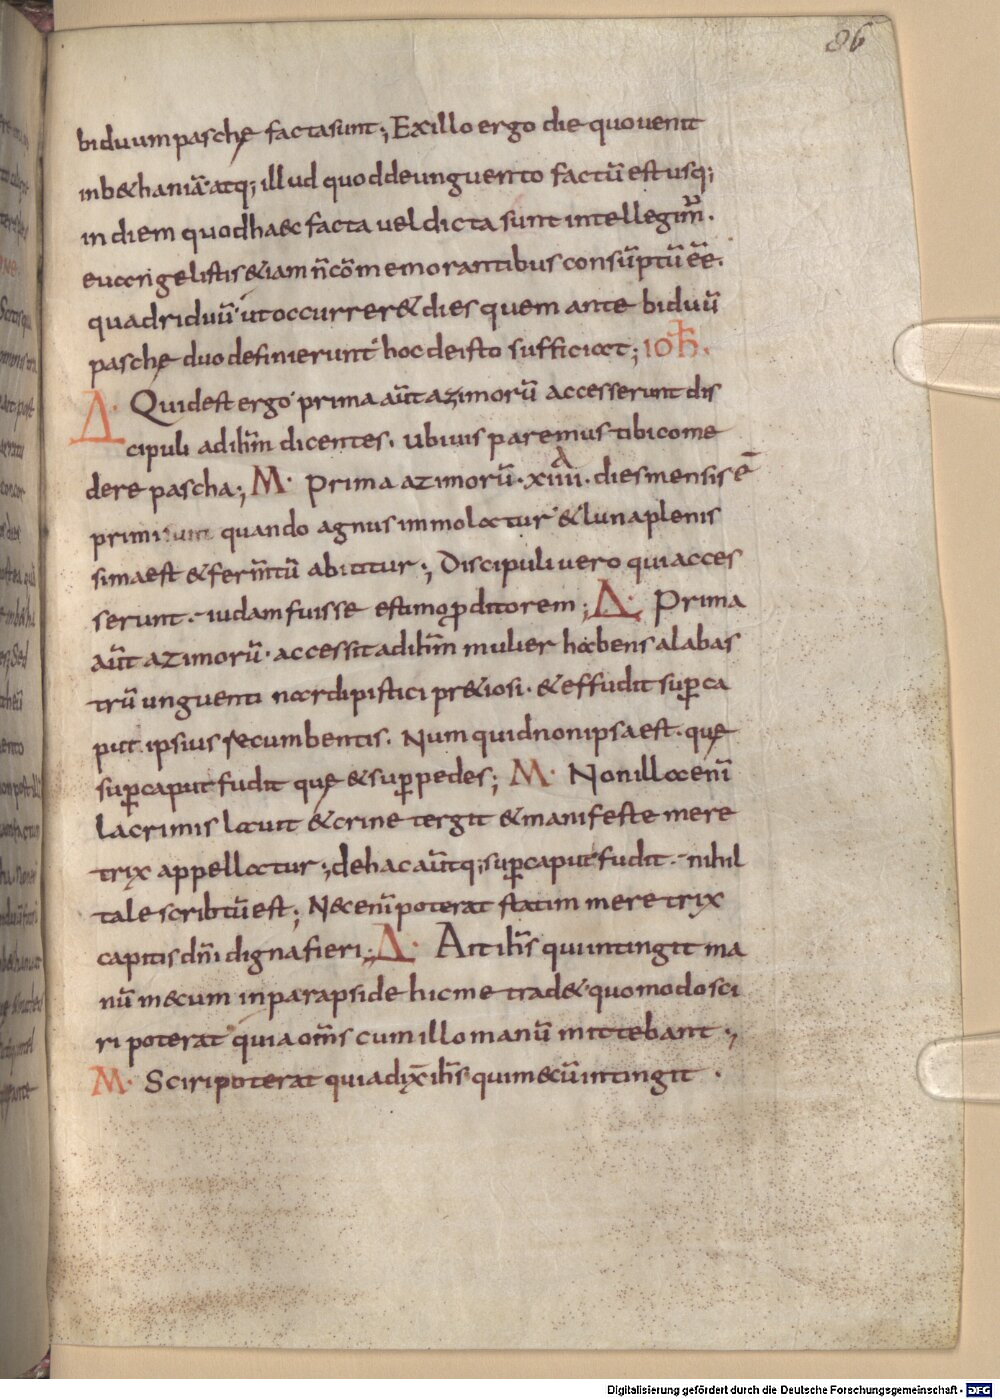 86
biduum paschę facta sunt; Ex illo ergo die quo uenit
in b&haniā· atq; illud quod de unguento factū est usq;
in diem quo dhaec facta uel dicta sunt intellegim̄.
euangelistis &iam n̄ cōmemorantibus consūptū ēē.
quadriduū ut occurrer& dies quem ante biduū
paschę duo definierunt hoc de isto sufficiat; IOH̄.
Δ· Quid est ergo prima aūt azimorū accesserunt dis
cipuli ad ih̄m dicentes. ubi uis paremus tibi come
dere pascha; M· Prima azimorū· xiiii· dies mensis ē
primi sunt quando agnus immolatur & luna plenis
sima est & ferm̄tū abititur; Discipuli uero qui acces
serunt· iudam fuisse estimo ꝓditorem; Δ· Prima
aūt azimorū· accessit ad ih̄m mulier habens alabas
trū unguenti nardi pistici pr&iosi· & effudit suꝑ ca
put ipsius recumbentis. Numquid non ipsa est· quę
suꝑ caput fudit quę & suꝑ pedes; M· Non illa enī
lacrimis lauit & crine tergit & manifeste mere
trix appellatur; de hac aūt q; suꝑ caput fudit· nihil
tale scribtū est; Nec enī poterat statim meretrix
capitis dn̄i digna fieri; Δ· Ait ih̄s qui intingit ma
nū mecum in parapside hic me trad& quomodo sci
ri poterat quia om̄s cum illo manū mittebant·;
M· Sciri poterat quia dix̄ ih̄s qui mecū intingit ·
Digitalisierung gefördert durch die Deutsche Forschungsgemeinschaft - DFG